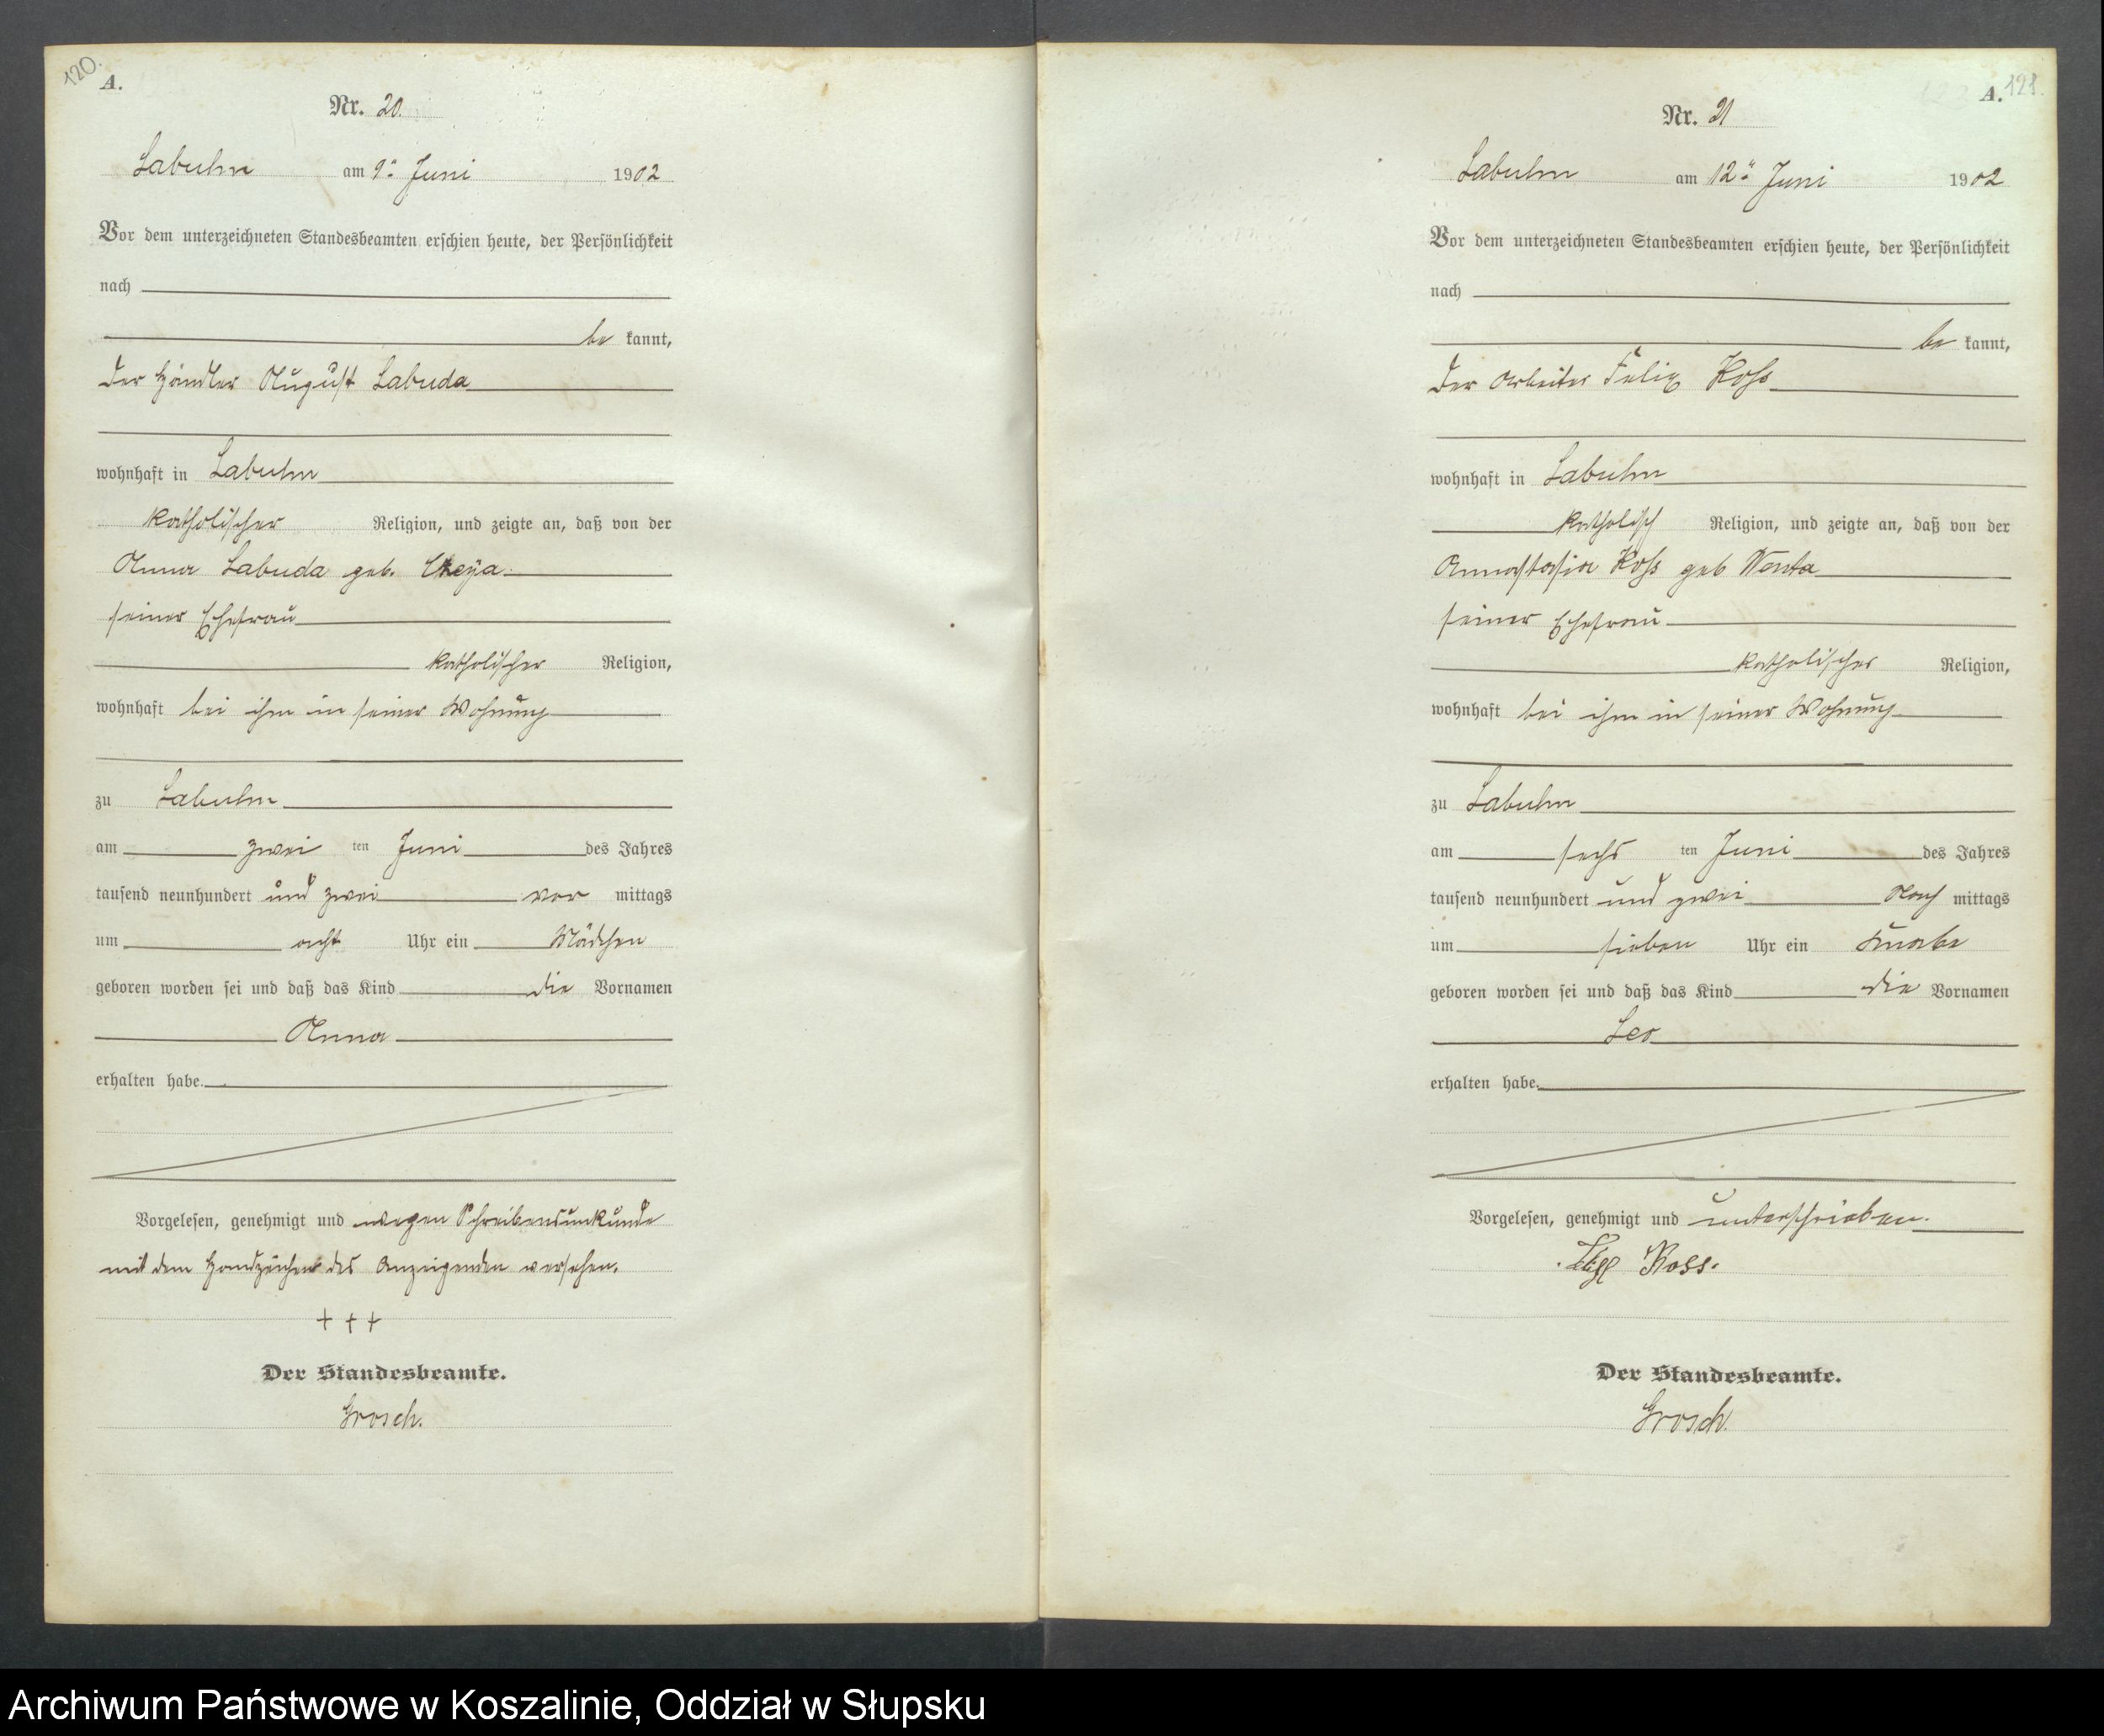 120.
A.
Nr. 20.
Labuhn am 9. Juni 1902
Vor dem unterzeichneten Standesbeamten erschien heute, der Persönlichkeit
nach
be kannt,
der Händler August Labuda
wohnhaft in Labuhn
katholischer Religion, und zeigte an, daß von der
Anna Labuda geb.
seiner Ehefrau
katholischer Religion,
wohnhaft bei ihm in seiner Wohnung
zu Labuhn
am zwei ten Juni des Jahres
tausend neunhundert und zwei vor mittags
um acht Uhr ein Mädchen
geboren worden sei und daß das Kind die Vornamen
Anna
erhalten habe.
Vorgelesen, genehmigt und wegen Schreibensunkunde
mit dem Handzeichen des Anzeigenden versehen.
+ + +
Der Standesbeamte.
Grosch.
A. 121.
Nr. 21
Labuhn am 12. Juni 1902
Vor dem unterzeichneten Standesbeamten erschien heute, der Persönlichkeit
nach
be kannt,
der Arbeiter Felix Koss
wohnhaft in Labuhn
katholisch Religion, und zeigte an, daß von der
Annastasia Koss geb Wenta
seiner Ehefrau
katholischer Religion,
wohnhaft bei ihm in seiner Wohnung
zu Labuhn
am sechs ten Juni des Jahres
tausend neunhundert und zwei Nach mittags
um sieben Uhr ein Knabe
geboren worden sei und daß das Kind die Vornamen
Leo
erhalten habe.
Vorgelesen, genehmigt und unterschrieben.
Koss.
Der Standesbeamte.
Grosch.
Archiwum Państwowe w Koszalinie, Oddział w Słupsku